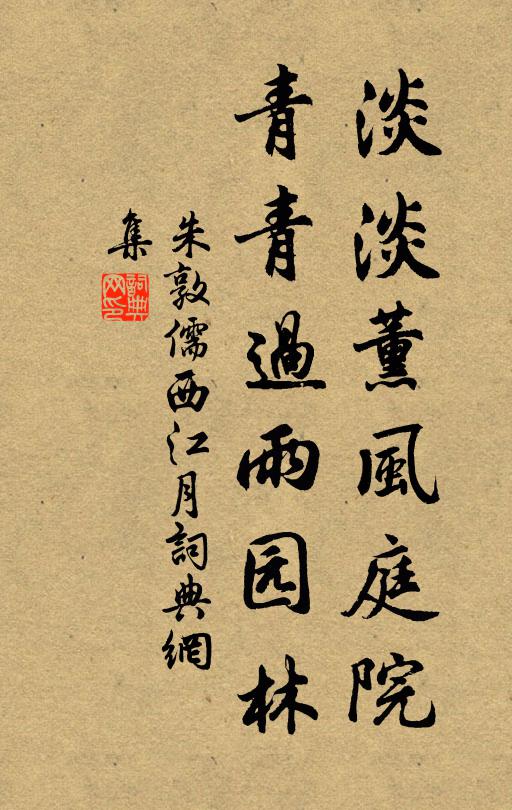 淡淡薰風庭院
青青過雨园林
朱敦儒西江月詞典網
集
詞典网印